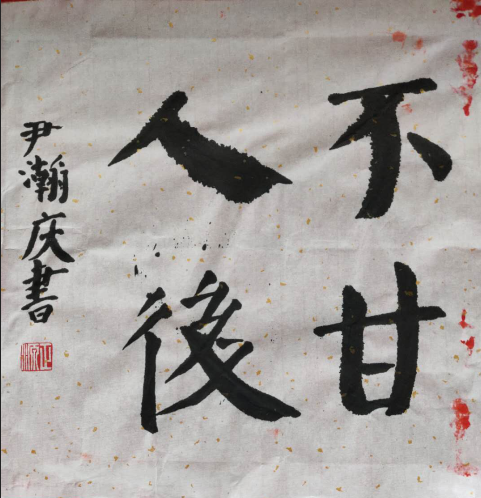 不甘
人後
尹瀚庆書